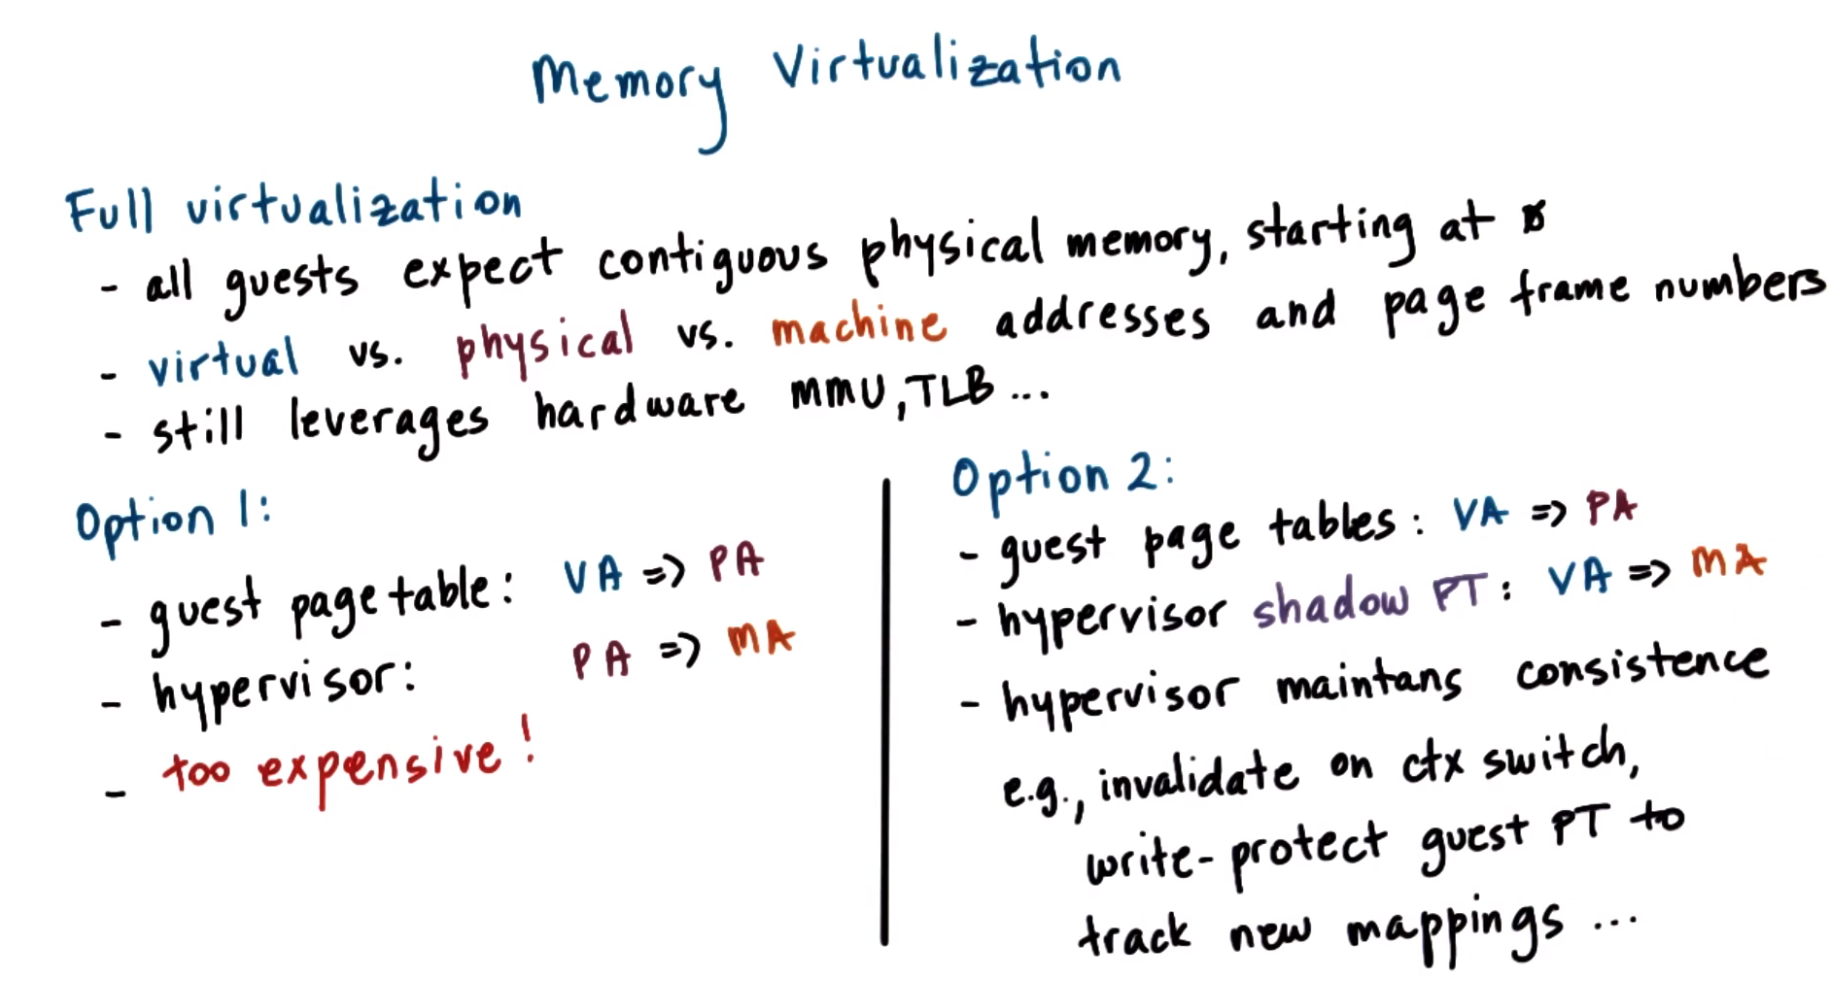 Memory Virtualization
Full virtualization
- all guests expect contiguous physical memory, starting at 0
- virtual vs. physical vs. machine addresses and page frame numbers
- still leverages hardware MMU, TLB...
Option 1:
- guest page table: VA => PA
- hypervisor: PA => MA
- too expensive!
Option 2:
- guest page tables: VA => PA
- hypervisor shadow PT: VA => MA
- hypervisor maintans consistence
e.g., invalidate on ctx switch,
write-protect guest PT to
track new mappings ...